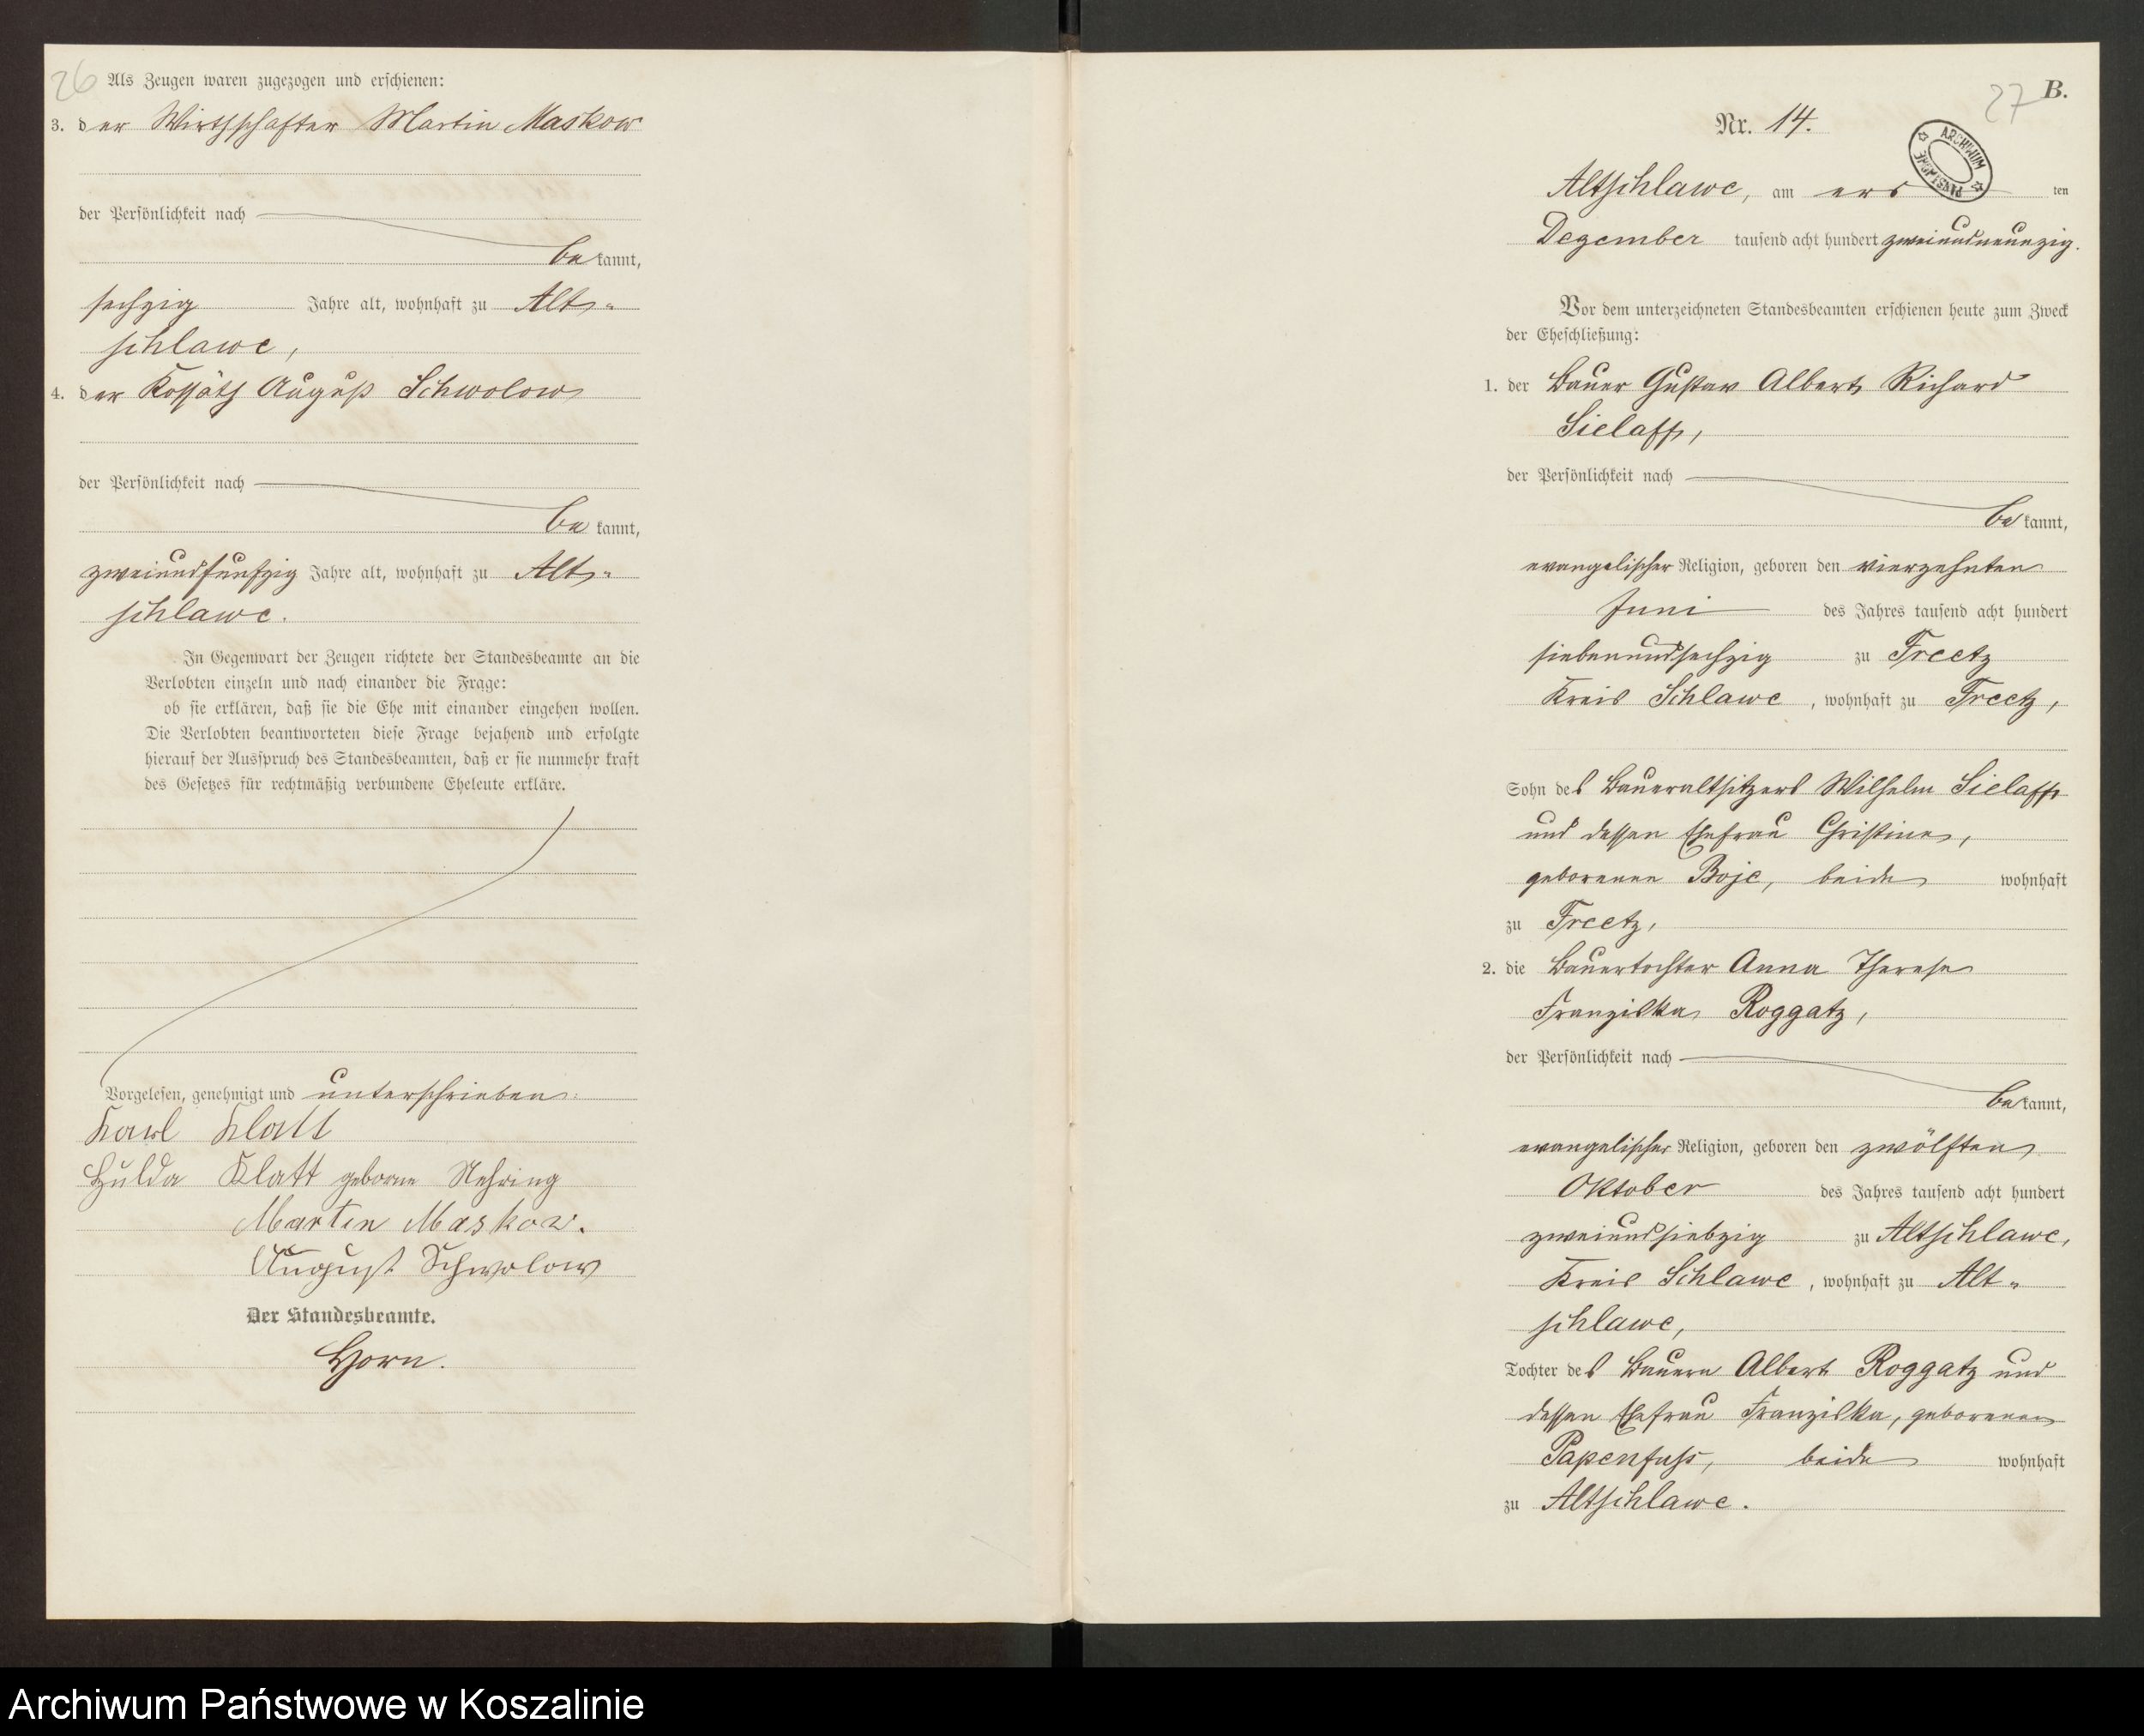 26
Als Zeugen waren zugezogen und erschienen:
3. der Wirthschafter Martin Maskow
der Persönlichkeit nach
bekannt,
sechzig Jahre alt, wohnhaft zu Alt-
schlawe,
4. der Kossäth August Schwolow
der Persönlichkeit nach
bekannt,
zweiundfünfzig Jahre alt, wohnhaft zu Alt-
schlawe.
In Gegenwart der Zeugen richtete der Standesbeamte an die
Verlobten einzeln und nach einander die Frage:
ob sie erklären, daß sie die Ehe mit einander eingehen wollen.
Die Verlobten beantworteten diese Frage bejahend und erfolgte
hierauf der Ausspruch des Standesbeamten, daß er sie nunmehr kraft
des Gesetzes für rechtmäßig verbundene Eheleute erkläre.
Vorgelesen, genehmigt und unterschrieben.
Karl Klatt
Hulda Klatt geborne Nehring
Martin Maskow.
August Schwolow
Der Standesbeamte.
Horn.
27 B.
Nr. 14.
ARCHIWUM PAŃSTWOWE
Altschlawe, am ers ten
Dezember tausend acht hundert zweiundneunzig.
Vor dem unterzeichneten Standesbeamten erschienen heute zum Zweck
der Eheschließung:
1. der Bauer Gustav Albert Richard
Sielaff,
der Persönlichkeit nach
bekannt,
evangelischer Religion, geboren den vierzehnten
Juni des Jahres tausend acht hundert
siebenundsechzig zu Freetz
Kreis Schlawe, wohnhaft zu Freetz,
Sohn des Baueraltsitzers Wilhelm Sielaff
und dessen Ehefrau Christine,
geborenen Boje, beide wohnhaft
zu Freetz,
2. die Bauertochter Anna Therese
Franziska Roggatz,
der Persönlichkeit nach
bekannt,
evangelischer Religion, geboren den zwölften
Oktober des Jahres tausend acht hundert
zweiundsiebzig zu Altschlawe,
Kreis Schlawe, wohnhaft zu Alt-
schlawe,
Tochter des Bauern Albert Roggatz und
dessen Ehefrau Franziska, geborenen
Papenfuss, beide wohnhaft
zu Altschlawe.
Archiwum Państwowe w Koszalinie